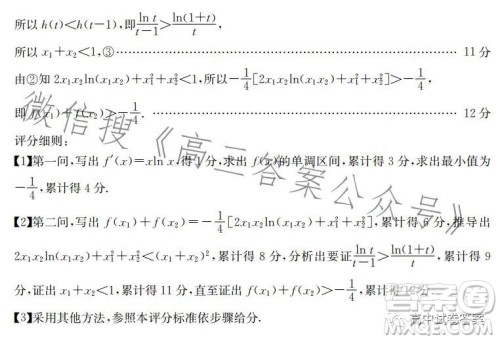 所以 h(t)<h(t-1),即 ln t/(t-1) > ln(1+t)/t,
所以 x₁+x₂<1,③ …… 11 分
由②知 2x₁x₂ln(x₁x₂)+x₁²+x₂²<1,所以 -1/4[2x₁x₂ln(x₁x₂)+x₁²+x₂²]>-1/4,
即 f(x₁)+f(x₂)>-1/4. …… 12 分
评分细则:
【1】第一问,写出 f′(x)=xln x,得 1 分,求出 f(x)的单调区间,累计得 3 分,求出最小值为
-1/4,累计得 4 分.
【2】第二问,写出 f(x₁)+f(x₂)=-1/4[2x₁x₂ln(x₁x₂)+x₁²+x₂²],累计得 6 分,推导出
2x₁x₂ln(x₁x₂)+x₁²+x₂²<(x₁+x₂)²,累计得 8 分,分析出要证 ln t/(t-1) > ln(1+t)/t,累计得 9
分,证出 x₁+x₂<1,累计得 11 分,直至证出 f(x₁)+f(x₂)>-1/4,累计得 分
【3】采用其他方法,参照本评分标准依步骤给分.
微信搜《高三答案公众号》
答案圈
高中试卷答案